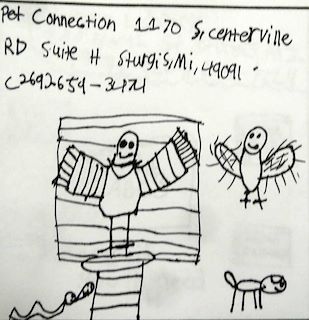 Pet Connection 1170 S, centerville
RD Suite H Sturgis, Mi, 49091